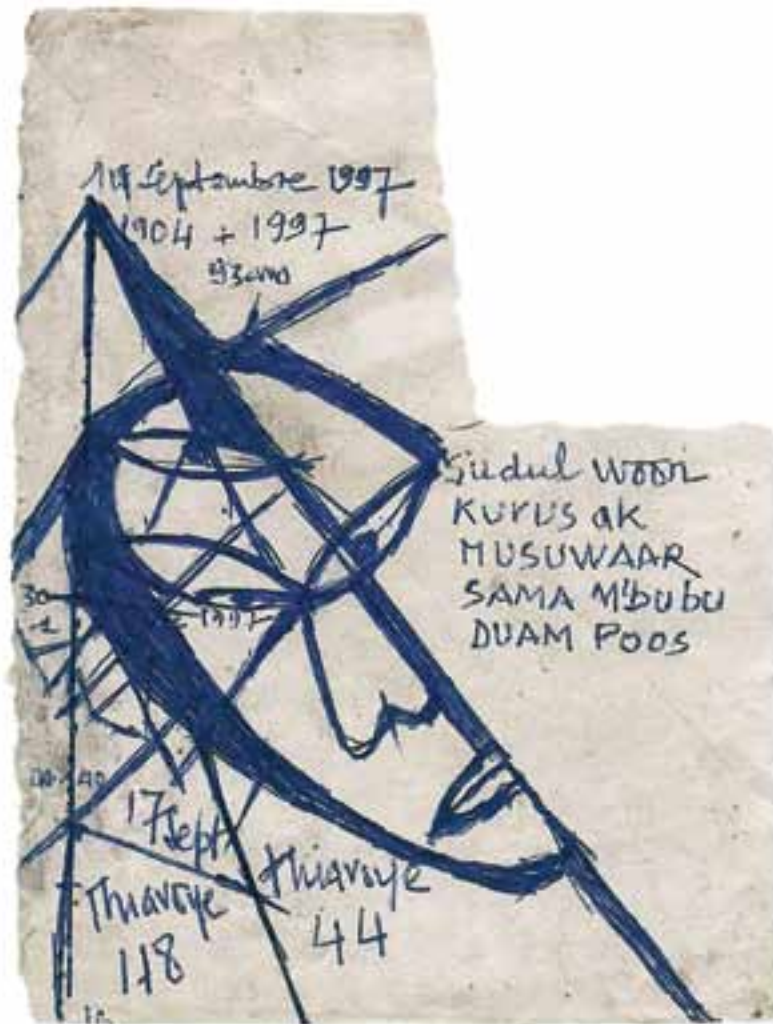 Septembre 1997
1904 + 1997
93 ans
Sudul woon
KURUS ak
MUSUWAAR
SAMA M'bubu
DUAM POOS
30
1
1997
17 Sept
Thiaroye
44
Thiaroye
118